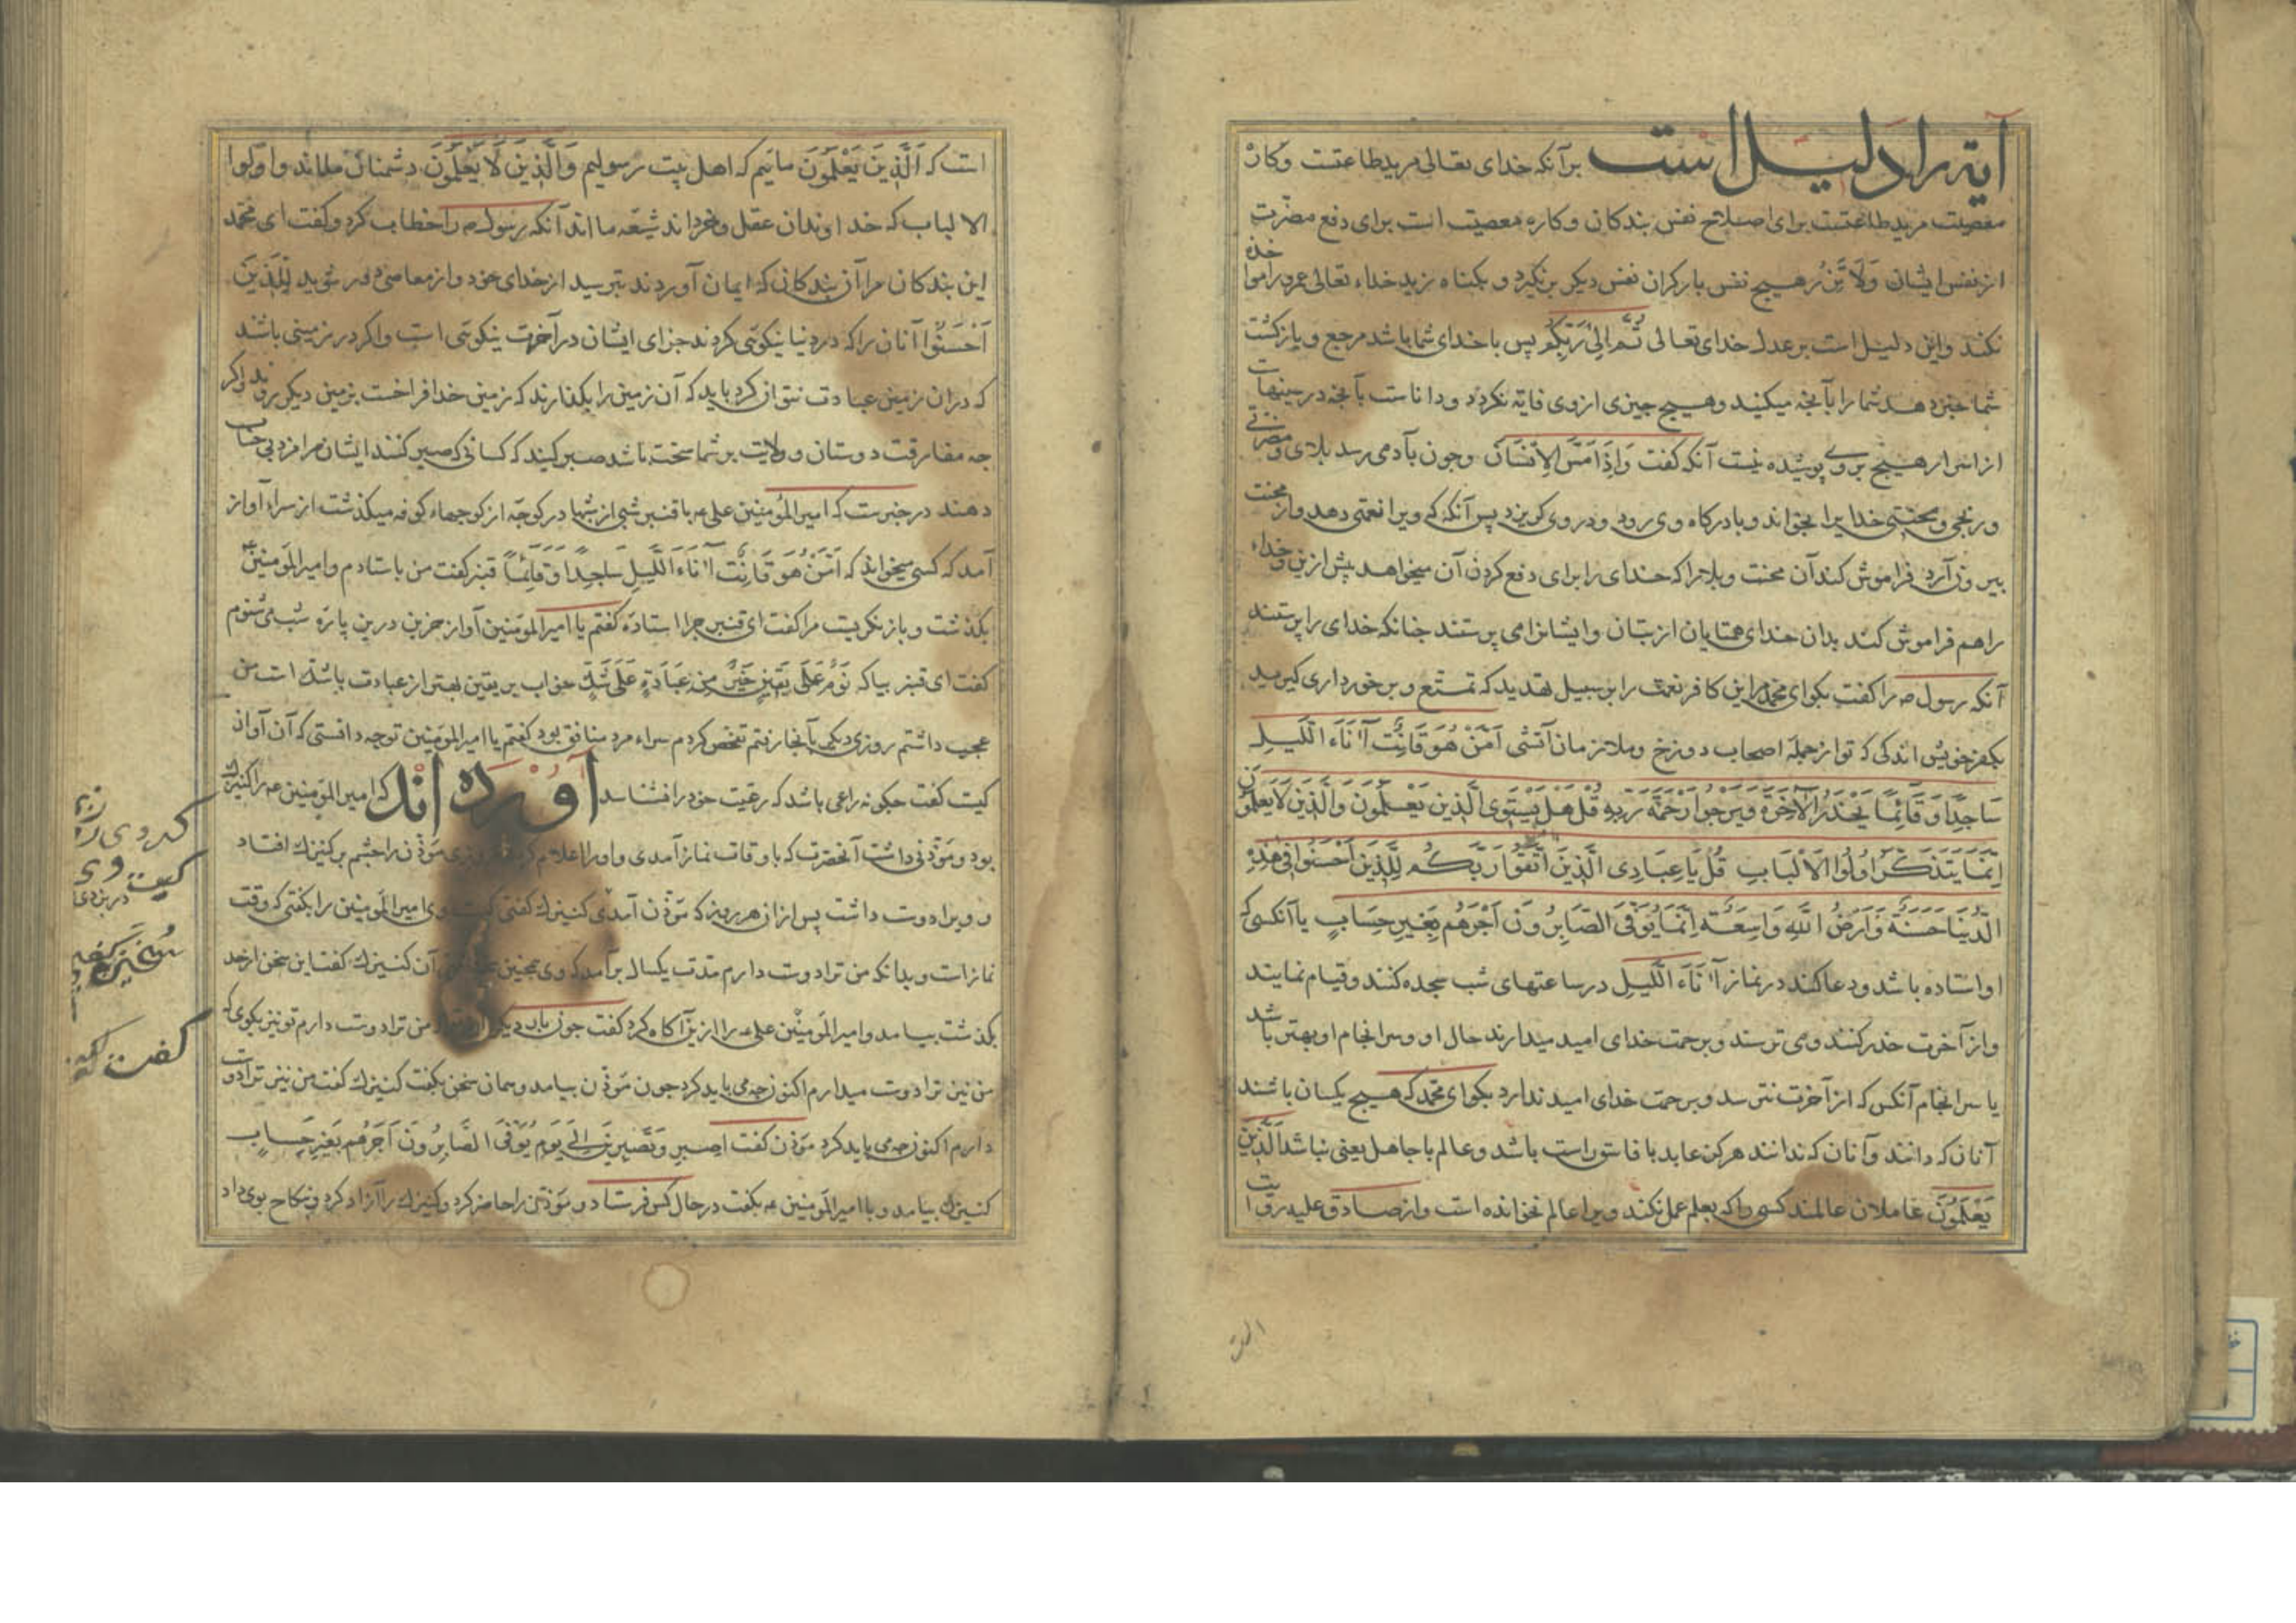 آیه را دلیل است برآنکه خدای تعالی مرید طاعتست وکاره
معصیت مرید طاعتست برای اصلاح نفس بندکان وکاره معصیت است برای دفع مضرت
از نفس ایشان وَلَا تَزِرُ هیچ نفس بارکران نفس دیکر برنکیرد و بکناه زید خداء تعالی عمرو را مواخذه
نکند واین دلیل است بر عدل خدای تعالی ثُمَّ اِلیٰ رَبِّکُم پس با خدای شما باشد مرجع و بازکشت
شما خبر دهد شما را بآنچه میکنید وهیچ چیزی ازوی فایته نکردد ودانا ست بآنچه در سینهاست
از اسرار هیچ بروی پوشیده نیست آنکه کفت وَاِذَا مَسَّ الاِنْسَانَ وچون بآدمی رسد بلای ومضرتی
ورنجی ومحنتی خدایرا بخواند وبا درکاه وی رود ودر وی کریزد پس آنکه که ویرا نعمتی دهد واز محنت
بیرون آرد فراموش کند آن محنت وبلا چراکه خدای را برای دفع کردن آن میخواهد پیش ازین وخداء
را هم فراموش کند بدان خدای همتایان از بتان وایشانرا می پرستند چنانکه خدای را پرستند
آنکه رسول صه را کفت بکو ای محمد مر این کافر نعمت را بر سبیل تهدید که تمتع وبرخورداری کیر مید
بکفر خویش اندکی که تو از جمله اصحاب دوزخ وملازمان آتشی اَمَّنْ هُوَ قَانِتٌ آنَاءَ الَّلیلِ
سَاجِدًا وَقَائِمًا یَحْذَرُ الآخِرَةَ وَیَرْجُوا رَحْمَةَ رَبِّهِ قُلْ هَلْ یَسْتَوِی الَّذِینَ یَعْلَمُونَ وَالَّذِینَ لَا یَعْلَمُونَ
اِنَّمَا یَتَذَکَّرُ اُولُوا الاَلْبَابِ قُلْ یَا عِبَادِی الَّذِینَ اتَّقُوا رَبَّکُم لِلَّذِینَ اَحْسَنُوا فِی هٰذِهِ
الدُّنْیَا حَسَنَةٌ وَاَرْضُ اللهِ وَاسِعَةٌ اِنَّمَا یُوَفَّی الصَّابِرُونَ اَجْرَهُم بِغَیرِ حِسَابٍ یا آنکسی که
او استاده باشد ودعا کند در نماز آنَاءَ الَّلیلِ در ساعتهای شب سجده کنند وقیام نمایند
واز آخرت حذر کنند ومی ترسند وبرحمت خدای امید میدارند حال او وسرانجام او بهتر باشد
یا سرانجام آنکس که از آخرت نترسد وبرحمت خدای امید ندارد بکو ای محمد که هیچ یکسان باشند
آنان که دانند وآنان که ندانند هرکز عابد با فاسق راست باشد وعالم با جاهل یعنی نباشد اَلَّذِینَ
یَعْلَمُونَ عاملان عالمند کسی راکه بعلم عمل نکند ویرا عالم نخوانده است واز صادق علیه روایت
است که اَلَّذِینَ یَعْلَمُونَ ماییم که اهل بیت رسولیم وَالَّذِینَ لَا یَعْلَمُونَ دشمنان ما اند واُولوا
الالباب که خداوندان عقل وخرد اند شیعه ما اند آنکه رسول صه را خطاب کرد وکفت ای محمد
این بندکان مرا آن بندکانی که ایمان آوردند بترسید از خدای خود واز معاصی دور شوید لِلَّذِینَ
اَحْسَنُوا آنان راکه در دنیا نیکوئی کردند جزای ایشان در آخرت نیکوئی است واکر در زمینی باشند
که دران زمین عبادت نتوان کرد باید که آن زمین را بکذارند که زمین خدا فراخست بزمین دیکر روند واکر
چه مفارقت دوستان وولایت بر شما سخت باشد صبر کنید که کسانی که صبر کنند ایشان را مزد بی حساب
دهند در خبرست که امیرالمؤمنین علی عه با قنبر شبی از شبها در کوچه از کوچهاء کوفه میکذشت از سراء آواز
آمد که کسی میخواند که اَمَّنْ هُوَ قَانِتٌ آنَاءَ الَّلیلِ سَاجِدًا وَقَائِمًا قنبر کفت من باستادم وامیرالمؤمنین عه
بکذشت وباز نکریست مرا کفت ای قنبر چرا استادهٔ کفتم یا امیرالمؤمنین آواز حزین درین پارهٔ شب می شنوم
کفت ای قنبر بیا که نَومٌ عَلَی یَقِینٍ خَیرٌ مِن عِبَادَةٍ عَلَی شَکٍّ خواب بر یقین بهتر از عبادت باشک است من
عجب داشتم روزی دیکر بآنجا رفتم تفحص کردم سراء مرد منافق بود کفتم یا امیرالمؤمنین تو چه دانستی که آن آواز
کیست کفت چکونه راعی باشد که رعیت خود را نشناسد آورده اند که امیرالمؤمنین عه را کنیزک
بود ومؤذنی داشت آنحضرت که باوقات نماز آمدی واورا اعلام کردی روزی مؤذن را چشم بر کنیزک افتاد
وویرا دوست داشت پس ازان هر روز که مؤذن آمدی کنیزک کفتی کیست وی امیرالمؤمنین را بکفتی که وقت
نماز است وبدانکه من ترا دوست دارم مدت یکسال برآمد که وی همچنین آن کنیزک کفت این سخن از حد
بکذشت بیامد وامیرالمؤمنین علی عه را ازین آکاه کرد کفت چون بار دیکر من ترا دوست دارم تو نیز بکوی که
من نیز ترا دوست میدارم اکنون چه می باید کرد چون مؤذن بیامد وهمان سخن بکفت کنیزک کفت من نیز ترا دوست
دارم اکنون چه می باید کرد مؤذن کفت اِصبِر وَنَصبِر اِلَی یَومِ یُوَفَّی الصَّابِرُونَ اَجْرَهُم بِغَیرِ حِسَابٍ
کنیزک بیامد وبا امیرالمؤمنین عه بکفت در حال کس فرستاد ومؤذن را حاضر کرد وکنیزک را آزاد کرد وبنکاح بوی داد
کردی روزی
کیست وی
کفت که